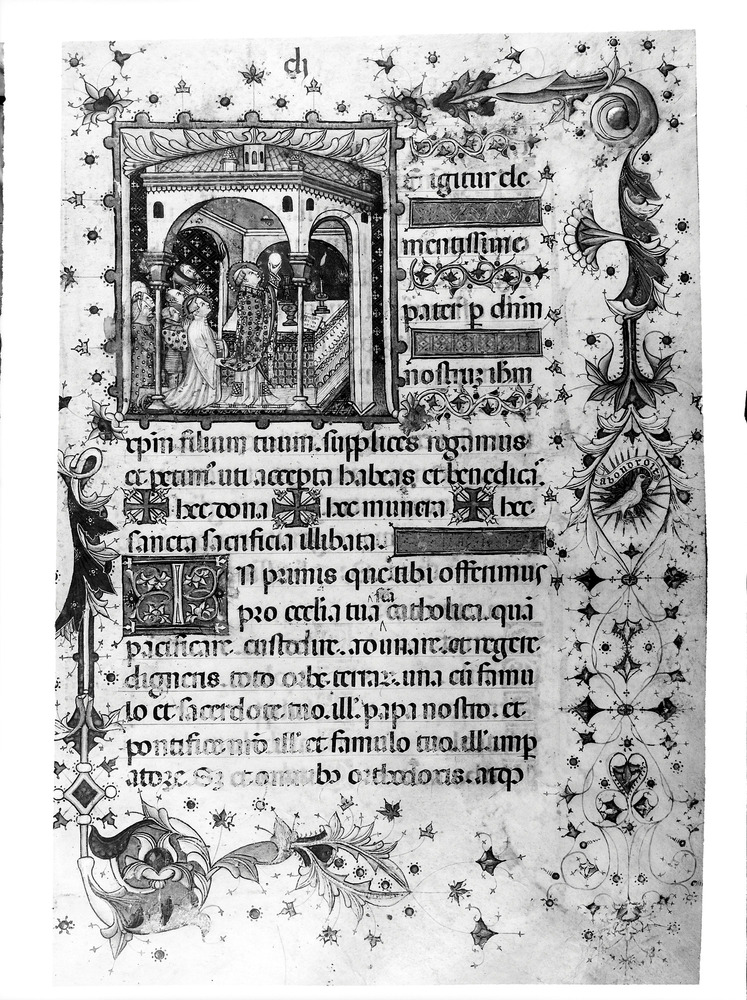 E igitur cle
mentissime
pater p dnm
nostrum ihm
xpm filium tuum. supplices rogamus
et petim. uti accepta habeas et benedica
hec dona hec munera hec
sancta sacrificia illibata.
In primis que tibi offerimus
pro ecclia tua sca catholica. qua
pacificare. custodire. adunare. et regere
digneris. toto orbe terrar. una cu famu
lo et sacerdote tuo. ill. papa nostro. et
pontifice nro. ill. et famulo tuo. ill. imp
atore. Sz et omnibo orthodoxis. atqz